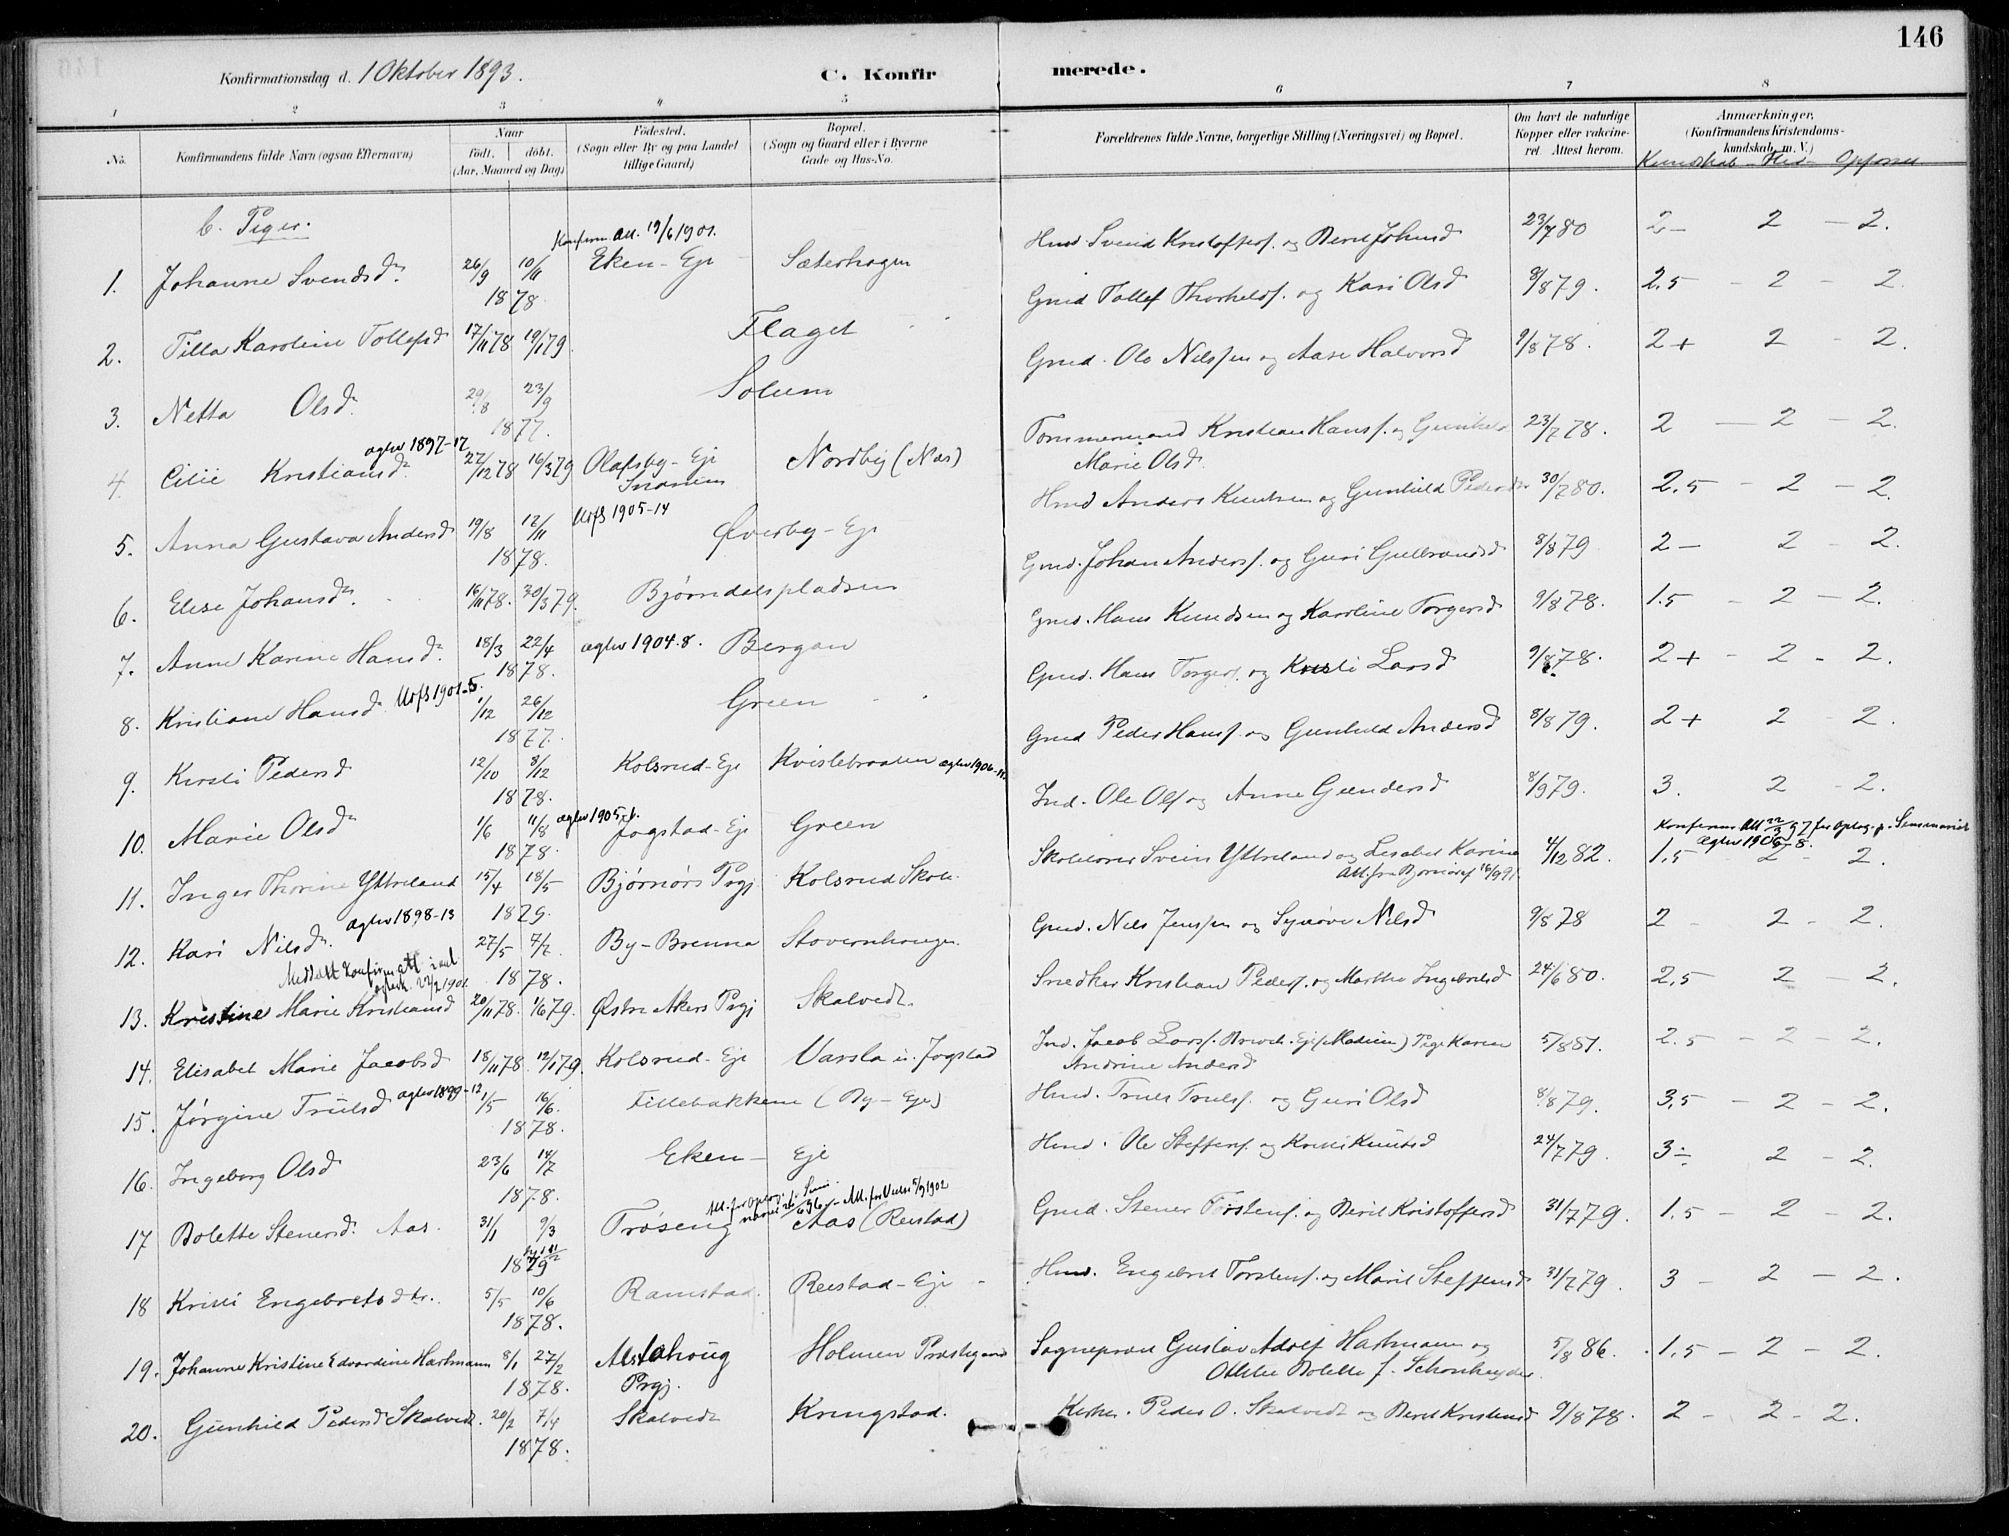 146
Konfirmationsdag d. 1 Oktober 1893.
C. Konfirmerede.
1 2 3 4 5 6 7 8
No. Konfirmandens fulde Navn (ogsaa Efternavn)
Naar født. døbt. (Aar, Maaned og Dag)
Fødested. (Sogn eller By og paa Landet tillige Gaard)
Bopæl. (Sogn og Gaard eller i Byerne Gade og Hus-No.
Forældrenes fulde Navne, borgerlige Stilling (Næringsvei) og Bopæl.
Om havt de naturlige Kopper eller vakcineret. Attest herom.
Anmærkninger, (Konfirmandens Kristendomskundskab m. V.)
Kundskab - Flid - Opførsel
b. Piger.
Konfirm. Att. 19/6 1901.
1. Johanne Svendsdr. 26/9 10/11 1878 Eken-Eje Sæterhagen Hmd Svend Kristoffers. og Berit Johnsd 23/7 80 2- 2 - 2.
2. Tilla Karoline Tollefsd 17/11 78 19/1 79 Flaget Gmd Tollef Thorkelds. og Kari Olsd 8/8 79. 2.5 - 2 - 2
3. Netta Olsd. 29/8 23/9 1877. Solum Gmd. Ole Nilssen og Aase Halvorsd 9/8 78. 2+ 2 - 2.
aglev 1897-17
4. Cilie Kristiansdr. 27/12 78 16/3 79 Olafsby-Eje Snarum Nordby (Næs) Tømmermand Kristian Hanss. og Gunhild Marie Olsd. 23/7 78. 2 - 2 - 2.
Utfl 1905-14
5. Anna Gustava Andersd 19/8 12/11 1878. Øverby-Eje Hmd Anders Knutsen og Gunhild Pedersdr 30/7 80. 2.5 - 2 - 2.
6. Elise Johansdr. 16/11 78. 30/3 79. Bjørndalspladsen Gmd. Johan Anderss. og Guri Gulbrandsd 8/8 79 2- 2 - 2.
7. Anne Karine Hansdr. 18/3 22/4 1878. aglev 1904.8. Bergan Gmd. Hans Knudsen og Karoline Torgersd 9/8 78. 1.5 - 2 - 2.
8. Kristiane Hansd. Utfl 1901-5. 1/12 26/12 1877. Green Gmd. Hans Torgers. og Kristi Larsd 9/8 78. 2+ - 2 - 2.
9. Kirsti Pedersd 12/10 8/12 1878. Kolsrud-Eje Kvislebraaten aglev 1906-11. Gmd Peder Hanss. og Gunhild Andersd 8/8 79. 2+ 2 - 2.
10. Marie Olsdr 1/6 11/8 1878. aglev 1905 Jogstad-Eje Green Ind. Ole Ols. og Anne Gundersd 8/9 79. 3. 2 - 2.
Konfirm Att 22/3 97 for Optag. p. Seminariet
Aglev 1906-8.
11. Inger Thorine Yttreland 15/4 18/5 1879. Bjørnørs Prgj Kolsrud Skole. Skolelærer Svein Yttreland og Lisabet Karine 4/12 82. 1.5 - 2 - 2.
Att. fra Bjørnør 16/9 91.
aglev 1898-13
12. Kari Nilsdr. 27/5 7/7 1878. By-Brenna Stovernhaugen Gmd. Nils Jenssen og Synøve Nilsd 9/8 78 2 - 2 - 2.
Meddelt konfirm att
22/2 1901.
13. Kristine Marie Kristiansd 20/11 78. 1/6 79. Østre Akers Prgj Skalvedt. Snedker Kristian Peders. og Marthe Ingebretsd 24/6 80. 2,5 - 2 - 2.
14. Elisabet Marie Jacobsd 18/11 78. 12/1 79. Kolsrud-Eje Varsla u. Jogstad Ind. Jacob Larss. (Modum) Pige Karen Andrine Andersd 5/8 81. 2.5 - 2 - 2.
15. Jørgine Trulsd aglev 1899-12 1/5 16/6. 1878. Fillebakken (By-Eje) Hmd. Truls Trulss. og Guri Olsd 8/8 79. 3,5 - 2 - 2.
16. Ingeborg Olsd 23/6 14/7 1878. Eken - Eje Hmd. Ole Steffens. og Kristi Knutsd 24/7 79. 3÷ 2 - 2.
Att. for Optag. i Seminariet 26/6 96 - Att. for Vielse 5/9 1902
17 Bolette Stenersd. Aas. 31/1 9/3 1879 Trøseng Aas (Renstad) Gmd. Stener Torstens. og Berit Kristoffersd 31/7 79. 1.5 - 2 - 2.
18 Kristi Engebretsdtr. 5/5 10/6 1878. Ramstad. Renstad-Eje - Hmd. Engebret Torstens. og Marit Steffensd 31/7 79. 3 - 2 - 2.
19. Johanne Kristine Edvardine Hartmann 8/1 27/2 1878. Alstahoug Prgj. Holmen Præstegaard Sogneprest Gustav Adolf Hartmann og Othlie Bolette f. Schønheyder. 5/8 86. 1.5 - 2 - 2.
20. Gunhild Pedersd. Skalvedt. 20/2 7/4 1878. Skalvedt Kringstad. Kirkes. Peder O. Skalvedt og Berit Kristensd 9/8 78. 2 - 2 - 2.